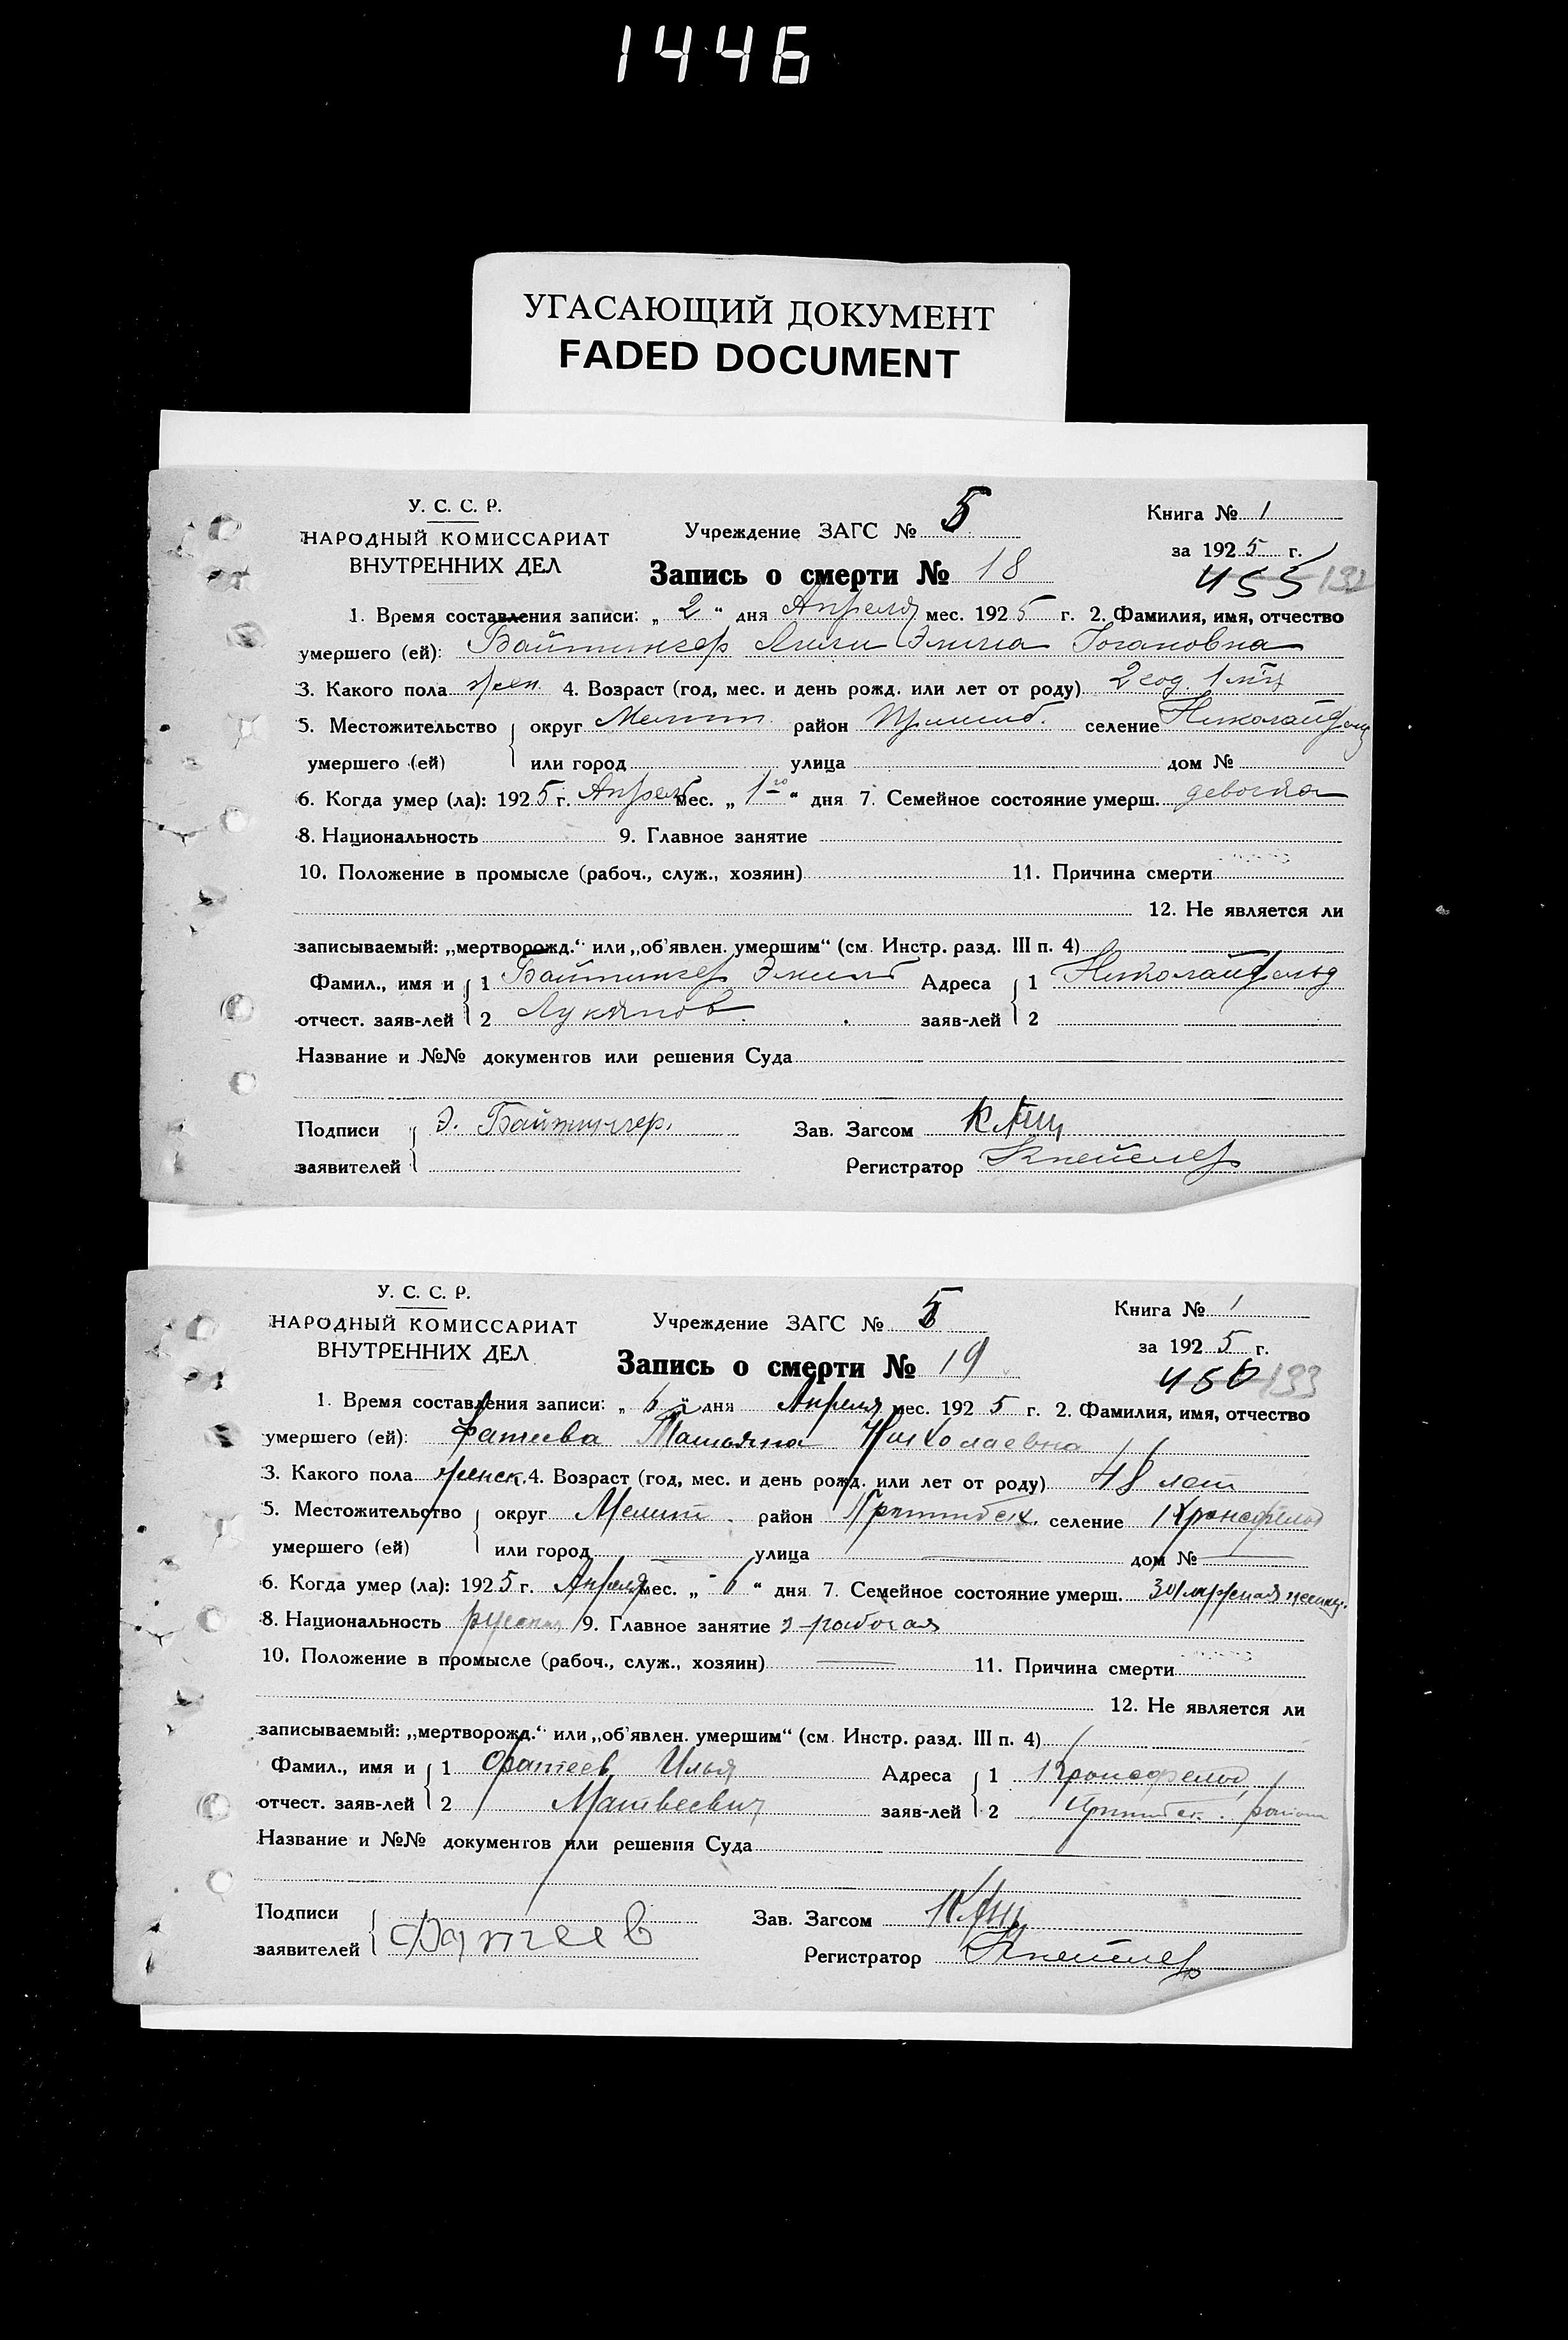 1446
УГАСАЮЩИЙ ДОКУМЕНТ
FADED DOCUMENT
У. С. С. Р.
НАРОДНЫЙ КОМИССАРИАТ
ВНУТРЕННИХ ДЕЛ
Учреждение ЗАГС № 5
Книга № 1
за 1925 г.
Запись о смерти № 18
455 132
1. Время составления записи: „2“ дня Апреля мес. 1925 г. 2. Фамилия, имя, отчество
умершего (ей): Байтингер Эмма Иогановна
3. Какого пола жен. 4. Возраст (год, мес. и день рожд. или лет от роду) 2 год. 1 м-ц
5. Местожительство округ Мелит. район Пришиб. селение Николайфельд
умершего (ей) или город улица дом №
6. Когда умер (ла): 1925 г. Апреля мес. „1го“ дня 7. Семейное состояние умерш. девочка
8. Национальность 9. Главное занятие
10. Положение в промысле (рабоч., служ., хозяин) 11. Причина смерти
12. Не является ли
записываемый: „мертворожд.“ или „об'явлен. умершим“ (см. Инстр. разд. III п. 4)
Фамил., имя и 1 Байтингер Эмиль Адреса 1 Николайфельд
отчест. заяв-лей 2 заяв-лей 2
Название и №№ документов или решения Суда
Подписи Э. Байтингер. Зав. Загсом
заявителей Регистратор
У. С. С. Р.
НАРОДНЫЙ КОМИССАРИАТ
ВНУТРЕННИХ ДЕЛ
Учреждение ЗАГС № 5
Книга № 1
за 1925 г.
Запись о смерти № 19
456 133
1. Время составления записи: „6“ дня Апреля мес. 1925 г. 2. Фамилия, имя, отчество
умершего (ей): Фатеева Татьяна Николаевна
3. Какого пола женск. 4. Возраст (год, мес. и день рожд. или лет от роду) 48 лет
5. Местожительство округ Мелит. район Пришибск. селение Кронсфельд
умершего (ей) или город улица дом №
6. Когда умер (ла): 1925 г. Апреля мес. „6“ дня 7. Семейное состояние умерш.
8. Национальность русская 9. Главное занятие рабочая
10. Положение в промысле (рабоч., служ., хозяин) 11. Причина смерти
12. Не является ли
записываемый: „мертворожд.“ или „об'явлен. умершим“ (см. Инстр. разд. III п. 4)
Фамил., имя и 1 Фатеев Илья Адреса 1 Кронсфельд
отчест. заяв-лей 2 Матвеевич заяв-лей 2 Пришибск. района
Название и №№ документов или решения Суда
Подписи Зав. Загсом
заявителей Фатеев Регистратор